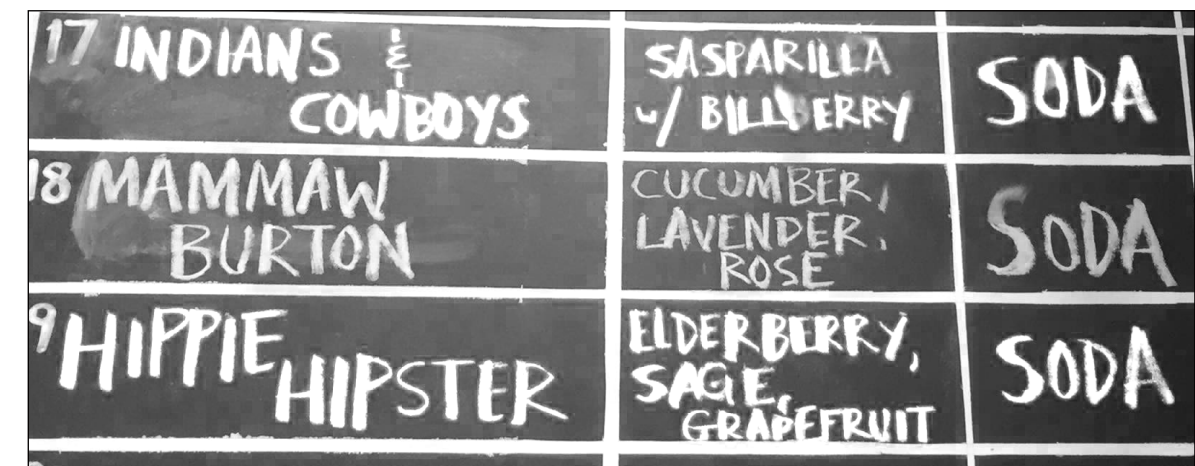 17 INDIANS &
COWBOYS
SASPARILLA
w/ BILLBERRY
SODA
18 MAMMAW
BURTON
CUCUMBER,
LAVENDER,
ROSE
SODA
9 HIPPIE
HIPSTER
ELDERBERRY,
SAGE,
GRAPEFRUIT
SODA